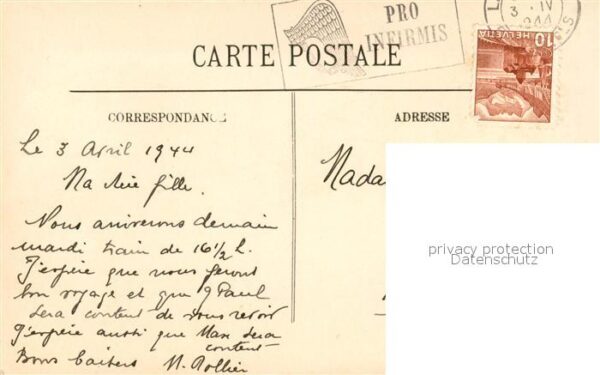 PRO
INFIRMIS
3. IV
1944
HELVETIA
10
CARTE POSTALE
CORRESPONDANCE
ADRESSE
Le 3 April 1944
Ma fille.
Nous arriverons demain
mardi train de 16 1/2 h.
J'espère que nous ferons
bon voyage et que Paul
sera content de nous revoir
J'espère aussi que Max sera
content
Bons baisers M. Rollier
Mada
privacy protection
Datenschutz